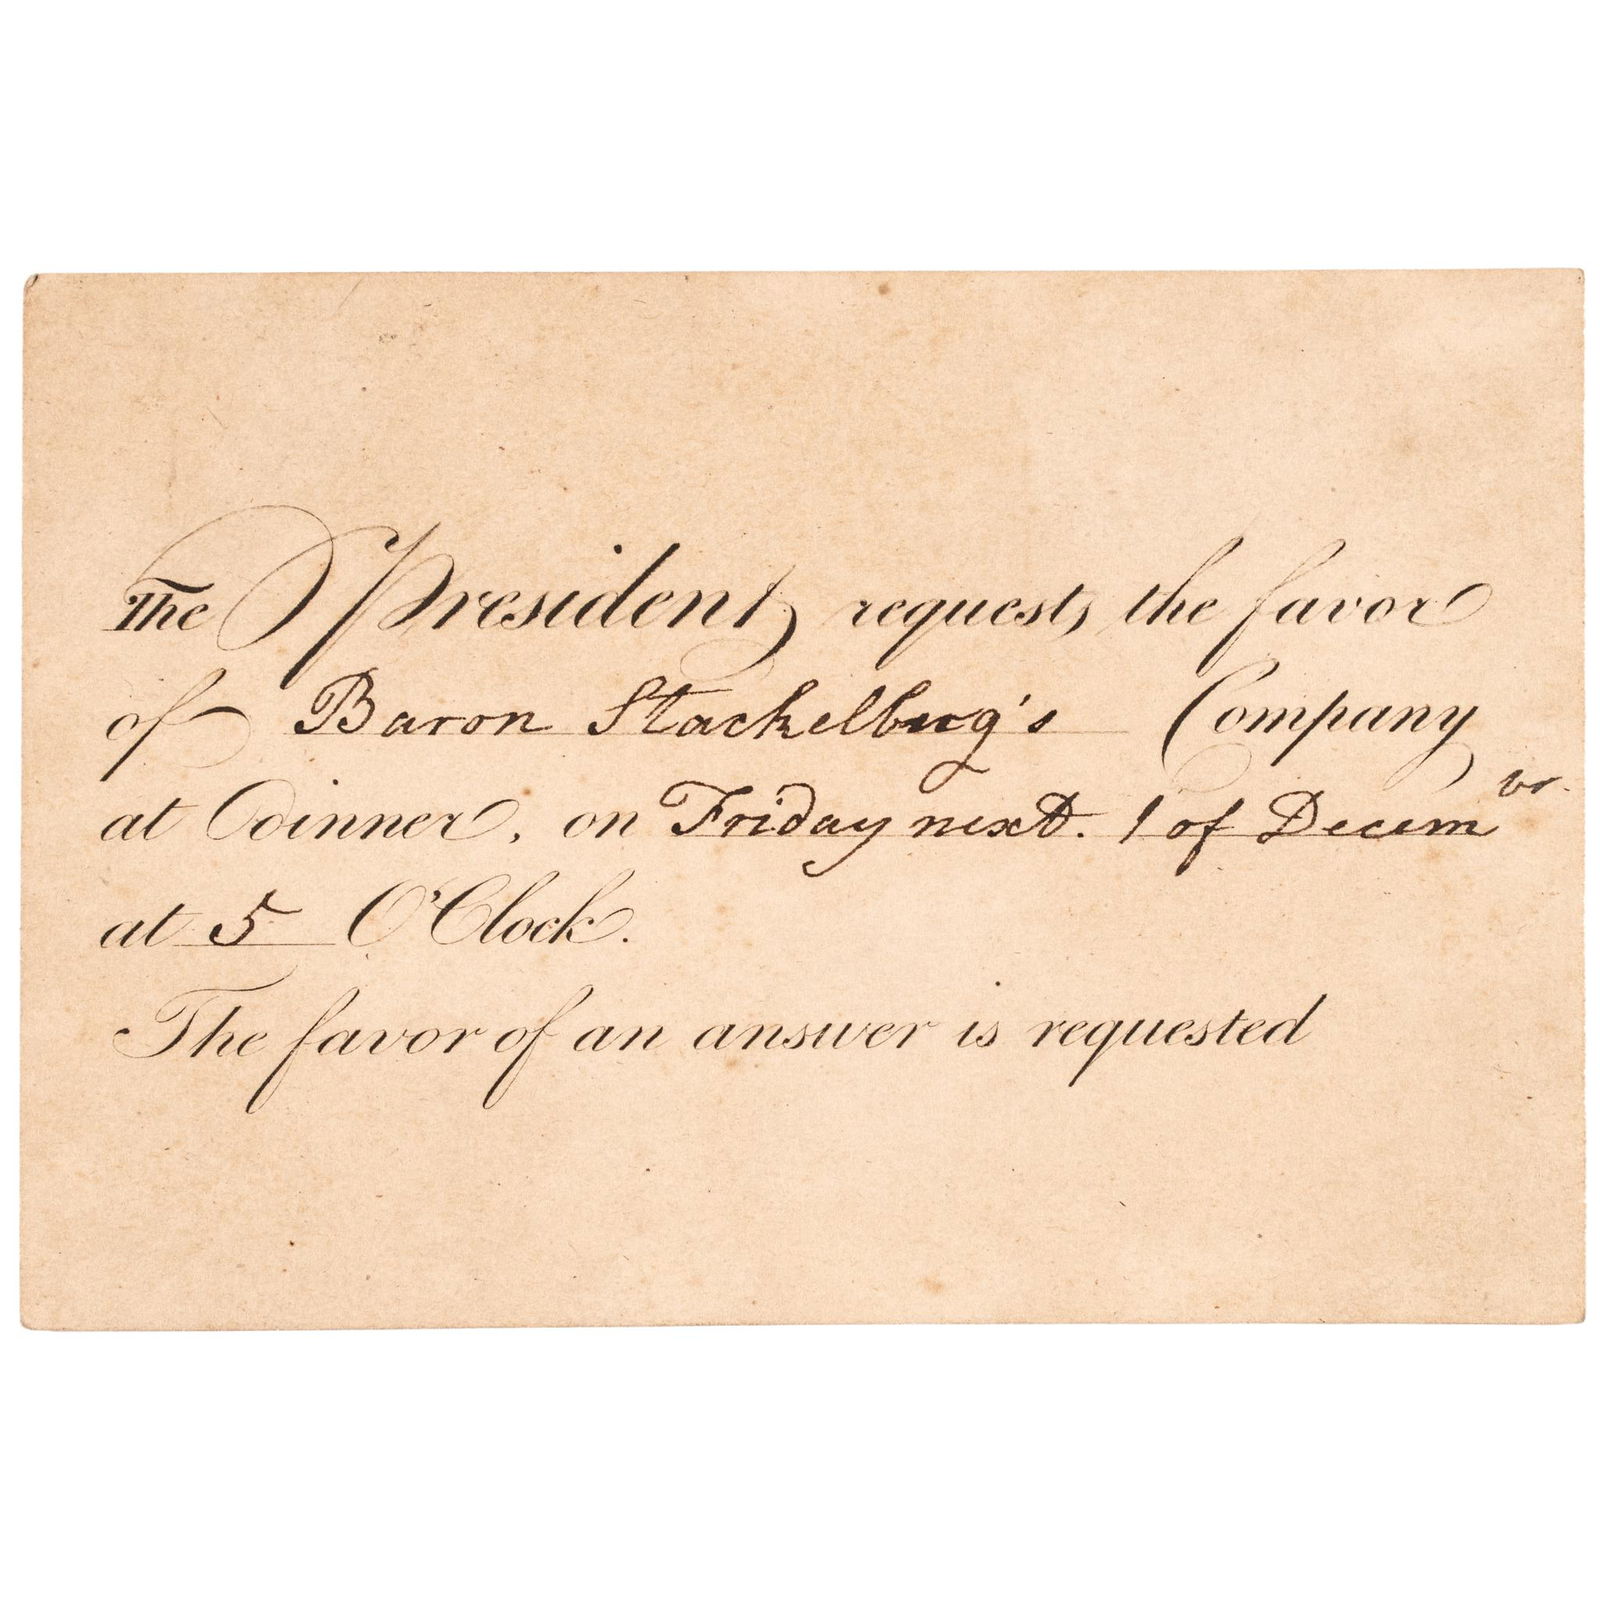 The President requests the favor
of Baron Stackelberg's Company
at Dinner, on Friday next. 1 of Decem^br.
at 5 O'Clock.
The favor of an answer is requested